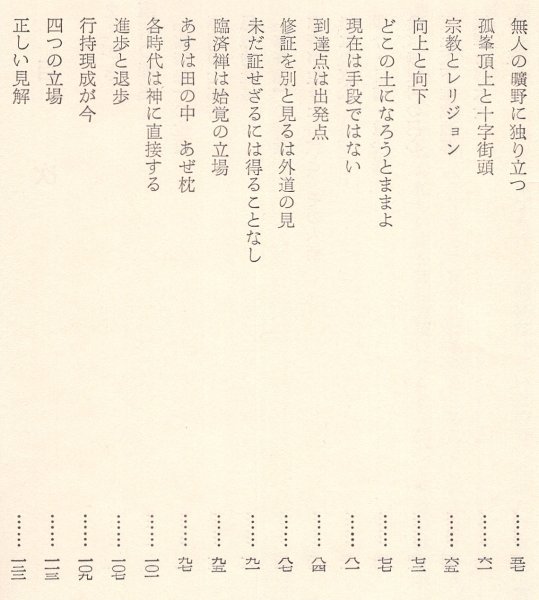 無人の曠野に独り立つ……五七
孤峯頂上と十字街頭……六一
宗教とレリジョン……六五
向上と向下……七三
どこの土になろうとままよ……七七
現在は手段ではない……八一
到達点は出発点……八四
修証を別と見るは外道の見……八七
未だ証せざるには得ることなし……九一
臨済禅は始覚の立場……九五
あすは田の中 あぜ枕……九七
各時代は神に直接する……一〇一
進歩と退歩……一〇七
行持現成が今……一〇九
四つの立場……一一三
正しい見解……一二三